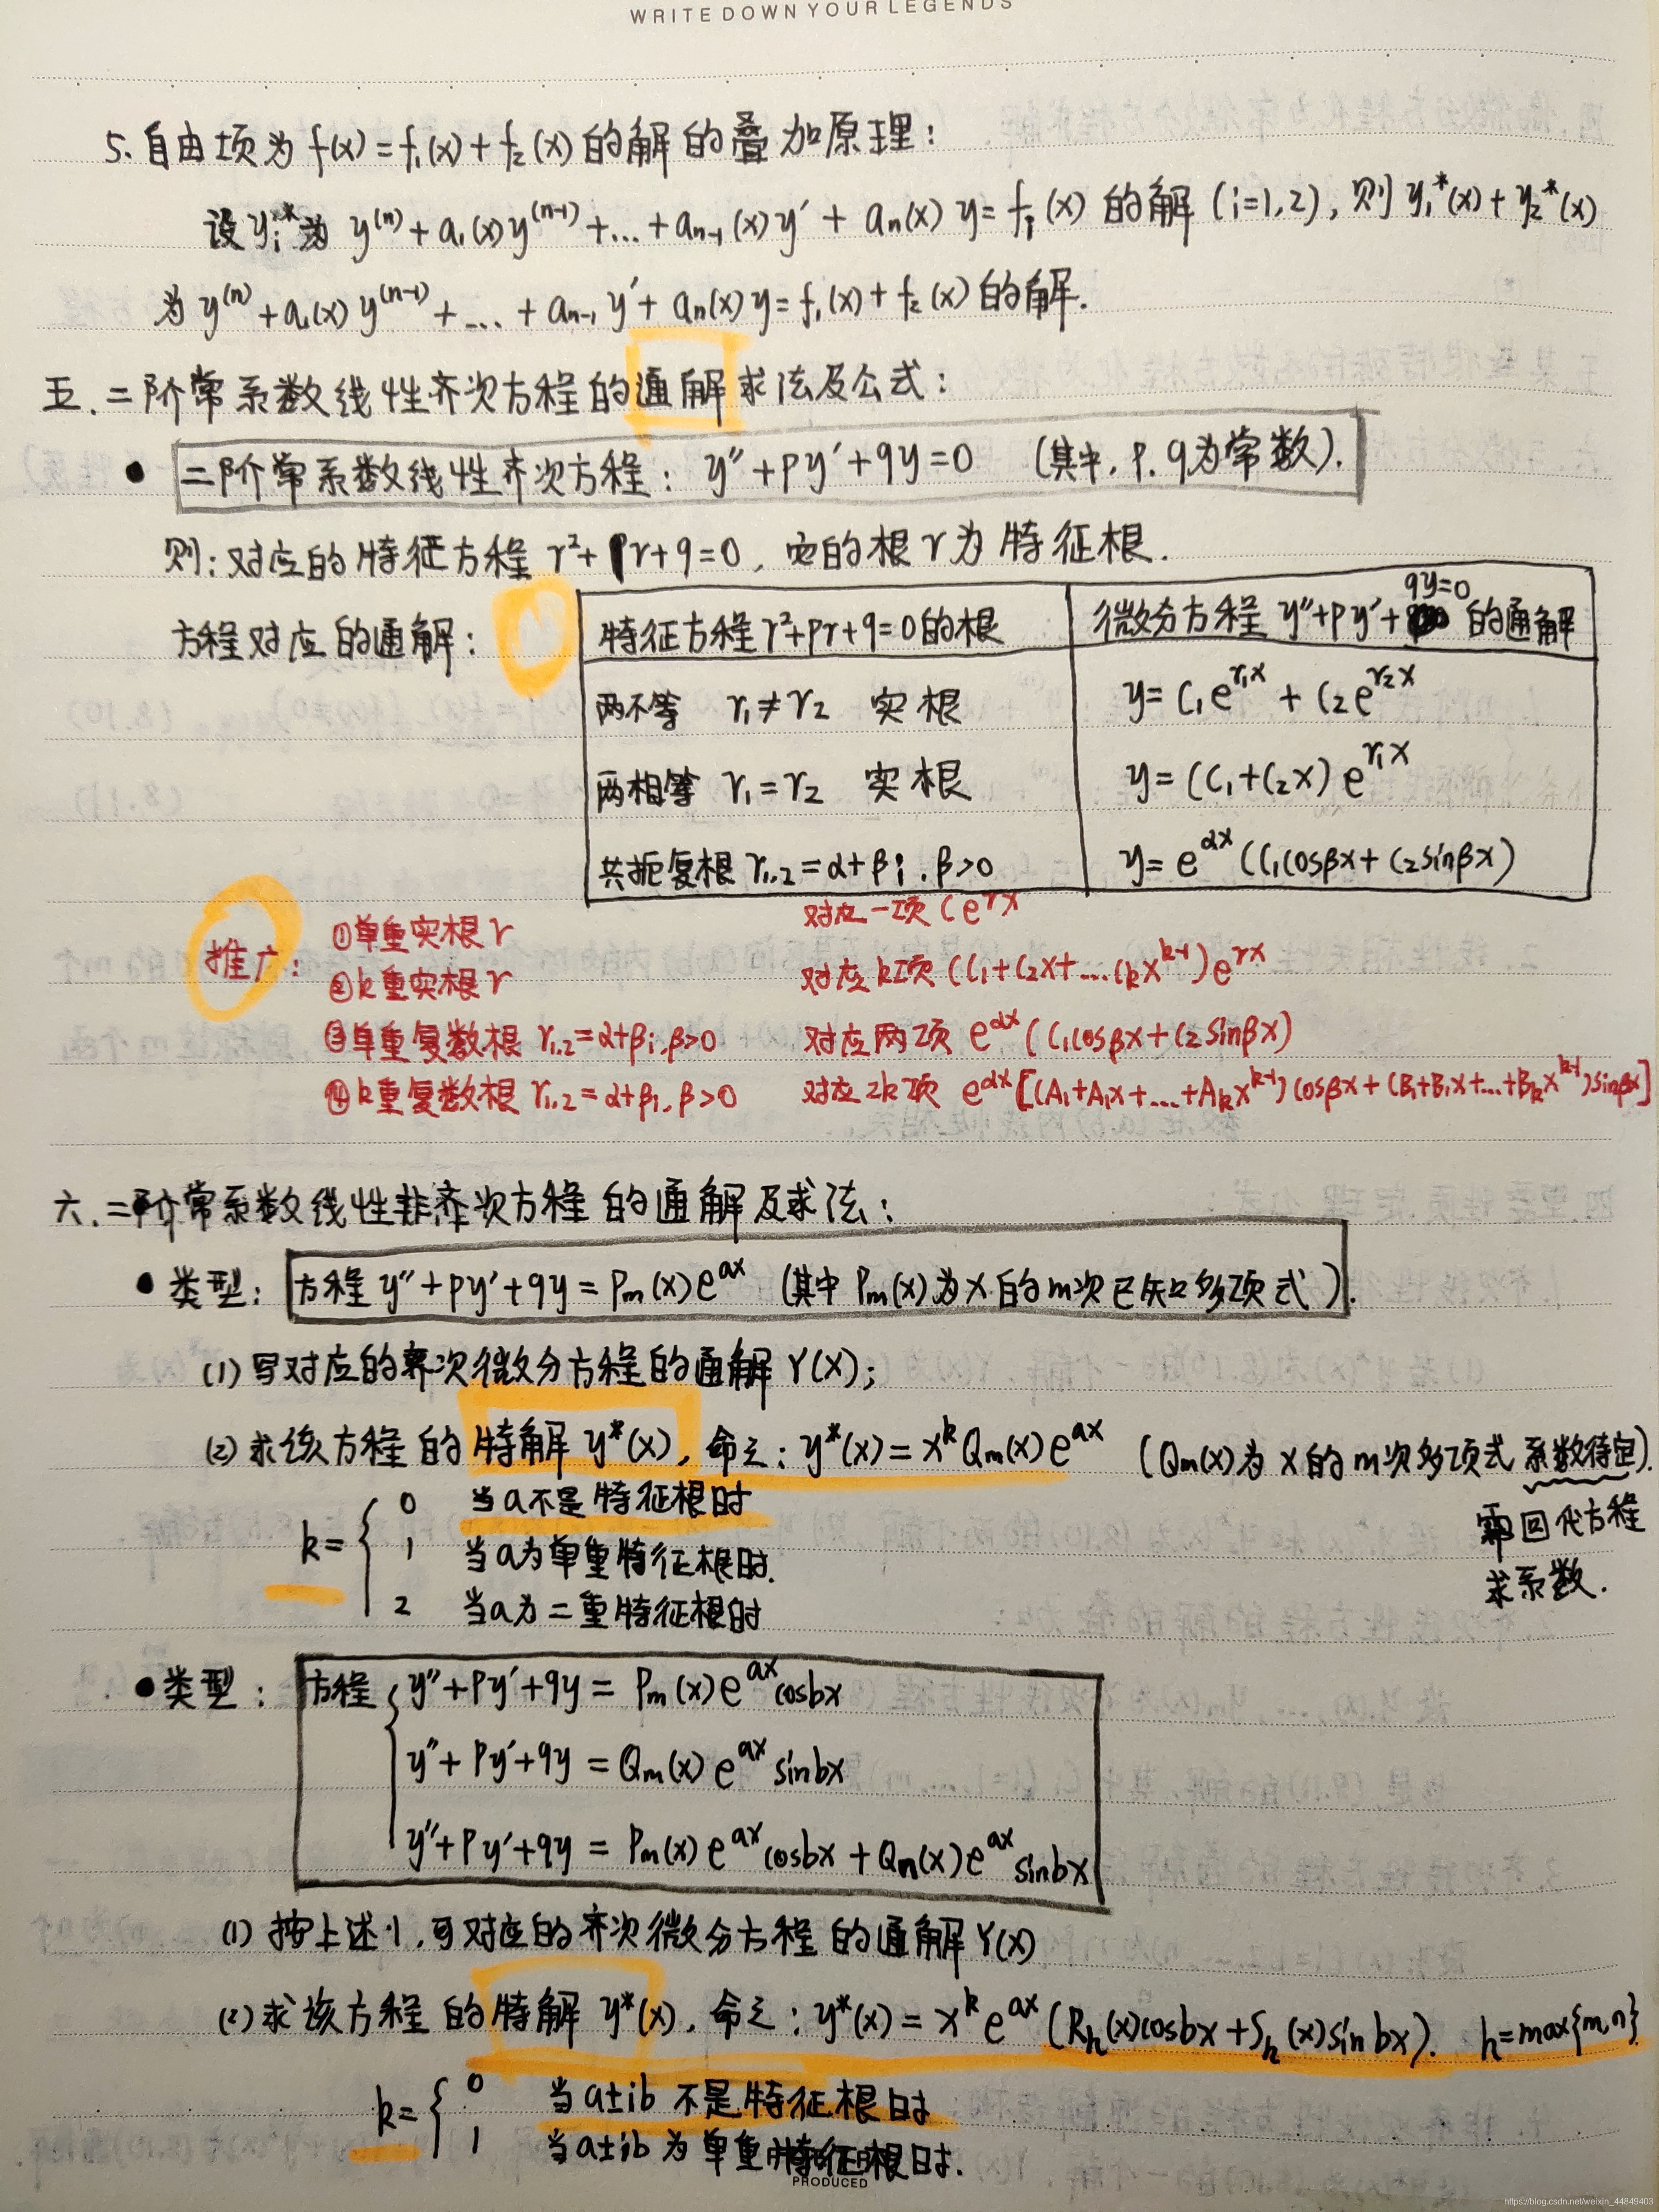 WRITE DOWN YOUR LEGENDS
5. 自由项为 f(x) = f₁(x) + f₂(x) 的解的叠加原理：
设 yᵢ* 为 y⁽ⁿ⁾ + a₁(x)y⁽ⁿ⁻¹⁾ + ... + aₙ₋₁(x)y′ + aₙ(x)y = fᵢ(x) 的解 (i=1,2), 则 y₁*(x) + y₂*(x)
为 y⁽ⁿ⁾ + a₁(x)y⁽ⁿ⁻¹⁾ + ... + aₙ₋₁y′ + aₙ(x)y = f₁(x) + f₂(x) 的解.
五. 二阶常系数线性齐次方程的通解求法及公式：
● 二阶常系数线性齐次方程： y″+py′+qy=0 (其中, p. q为常数).
则：对应的特征方程 r²+pr+q=0, 它的根 r 为特征根.
方程对应的通解：
特征方程 r²+pr+q=0的根 微分方程 y″+py′+qy=0 的通解
两不等 r₁≠r₂ 实根 y= C₁e^{r₁x} + C₂e^{r₂x}
两相等 r₁=r₂ 实根 y= (C₁+C₂x) e^{r₁x}
共扼复根 r₁.₂=α+βi . β>0 y= e^{αx} (C₁cosβx+C₂sinβx)
推广：
①单重实根 r 对应一项 Ce^{rx}
②k重实根 r 对应k项 (C₁+C₂x+...Cₖx^{k-1}) e^{rx}
③单重复数根 r₁.₂=α+βi.β>0 对应两项 e^{αx} (C₁cosβx+C₂sinβx)
④k重复数根 r₁.₂=α+βi.β>0 对应2k项 e^{αx}[(A₁+A₁x+...+Aₖx^{k-1}) cosβx+(B₁+B₁x+...+Bₖx^{k-1})sinβx]
六. 二阶常系数线性非齐次方程的通解及求法：
● 类型： 方程 y″+py′+qy = Pₘ(x)e^{ax} (其中 Pₘ(x)为x的m次已知多项式).
(1) 写对应的齐次微分方程的通解 Y(x);
(2) 求该方程的特解 y*(x), 命之： y*(x) = x^k Qₘ(x) e^{ax} (Qₘ(x)为x的m次多项式 系数待定).
需回代方程
求系数.
k= { 0 当a不是特征根时
1 当a为单重特征根时.
2 当a为二重特征根时
● 类型： 方程 { y″+py′+qy = Pₘ(x)e^{ax}cosbx
y″+py′+qy = Qₘ(x)e^{ax}sinbx
y″+py′+qy = Pₘ(x)e^{ax}cosbx + Qₙ(x)e^{ax}sinbx
(1) 按上述1, 写对应的齐次微分方程的通解Y(x)
(2) 求该方程的特解 y*(x), 命之： y*(x) = x^k e^{ax} (Rₕ(x)cosbx+Sₕ(x)sin bx). h=max{m,n}
k= { 0 当a±ib 不是特征根时
1 当a±ib 为单重特征根时.
PRODUCED
https://blog.csdn.net/weixin_44849403